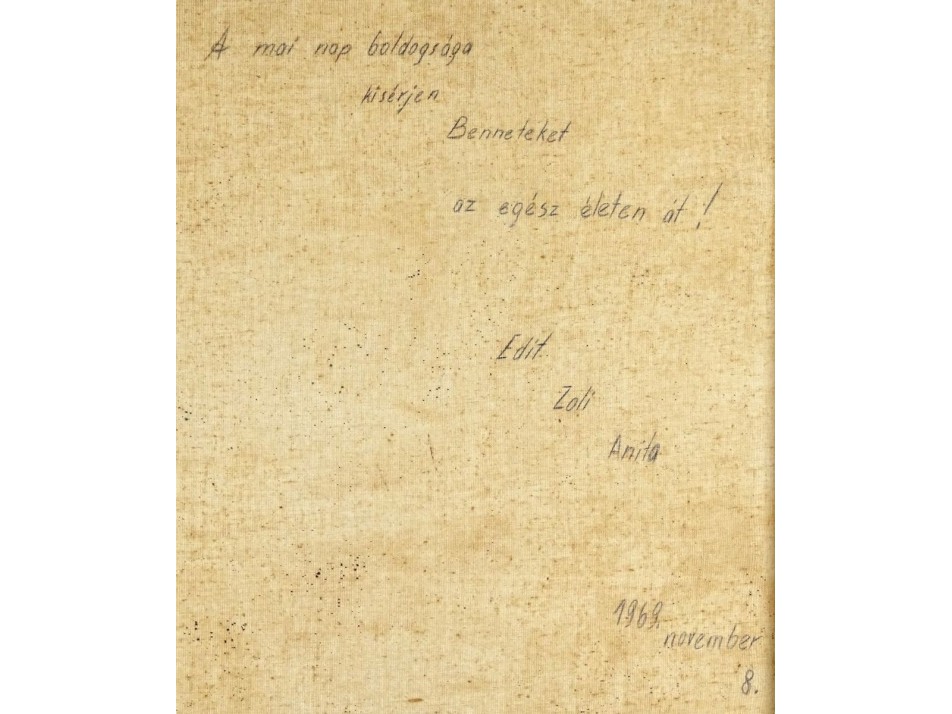 A mai nap boldogsága
kisérjen
Benneteket
az egész életen át!
Edit
Zoli
Anita
1969.
november
8.